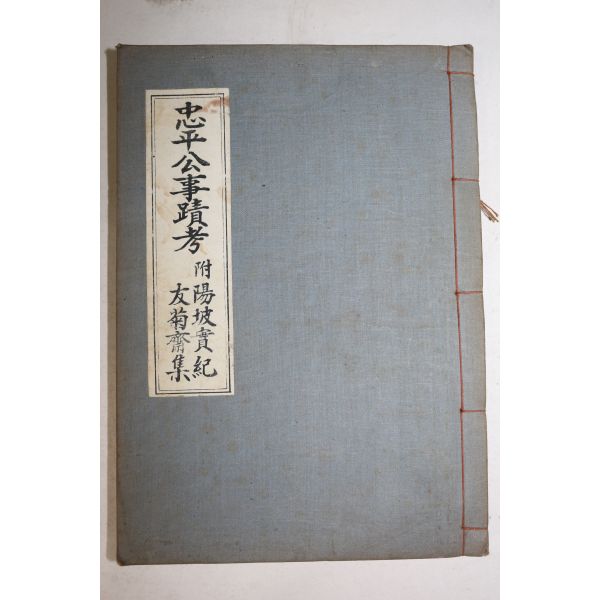 忠平公事蹟考
附陽坡實紀
友菊齋集